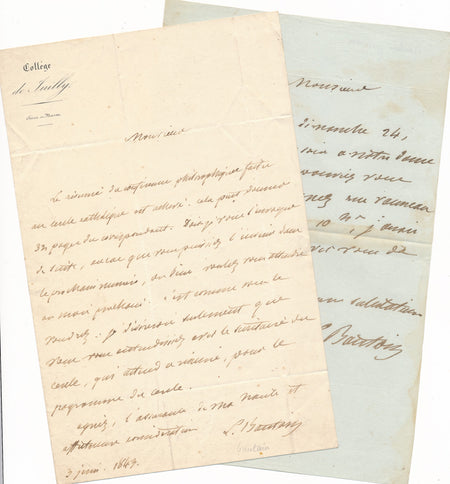 Collège
de Juilly.
Seine et Marne
Monsieur
Le résumé de conférence philosophique faite
au cercle catholique est achevé. cela peut donner
32 pages du correspondant. Puis-je vous l'envoyer
de suite, pour que vous puissiez l'insérer dans
le prochain numéro, ou bien voulez vous attendre
au mois prochain. c'est comme vous le
voudrez. je désirerois seulement que
vous vous entendissiez avec le secrétaire du
cercle, qui attend pour le
programme du cercle.
agréez, l'assurance de ma haute et
affectueuse considération
L. Bautain
3 juin 1843.
bautain
Monsieur
dimanche 24,
soir a notre dame
pourriez vous
10 h, j'aurai
vous de
salutations
L. Bautain